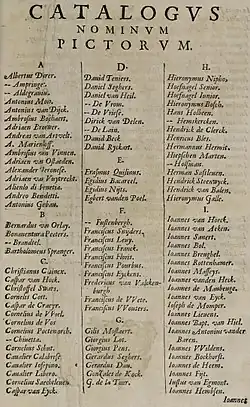 CATALOGVS
NOMINVM
PICTORVM.
A
Albertus Dürer.
Aldegraven.
Antonius Moor.
Antonius van Dijck.
Ambrosius
Adriaen Brouwer.
Andreas van Artvelt.
A.
Ambrosius van Vinnen.
Adriaen van Ostaeden.
Alexander Veronese.
Adriaen van
Aliento di Senetia.
Andreo Benedetti.
Antonius Geban.
B
Bernardus van Orley.
Bonaventura Peters.
Brandiel.
Bartholomeus Spranger.
C.
Christianus
Caspar van Hoeck.
Christoffel Storts.
Cornelis Cort.
Caspar de Crayer.
Cornelius de Wael.
Cornelius de Vos
Cornelius Poelenborch.
Cornelius Schut.
Cavalier Calabrese.
Cavalier Ispeyano.
Cavalier Liberi.
Cornelius Saechtleven.
Caspar van Eyck.
D.
David Teniers.
Daniel Seghers.
Daniel van Heil.
De Vrom.
De Vriese.
Dirick van Delen.
De Lain.
David Beck
David Ryckart.
E.
Erasmus Quelinus.
Egidius Bacareel.
Egidius Nijts.
Egbert vanden Poele.
F.
Fustenbergh.
Franciscus Snyders.
Franciscus Leux.
Franciscus Franck.
Franciscus Floris.
Franciscus Pourbus.
Franciscus Eyckens.
Fredericus van Valckenburgh.
Franciscus de Witte.
Franciscus Wouters.
G.
Gilis Mostaert.
Giorgius Lot.
Giorgius Pens.
Gerardus Seghers.
Gerardus Dau.
Gonsales de Kock.
G. de la Tour.
H.
Hieronymus Nipho.
Hoefnagel Senior.
Hoefnagel Junior.
Hieronymus Bosch.
Hans Holbeen.
Hemskercken.
Hendrick de Clerck.
Henricus Bles.
Hermannus
Hiepschen Marten.
Hofman.
Herman Sastleven.
Hendrick Steenwyck.
Hendrick van Balen.
Hieronymus Galle.
I.
Ioannes van Hoeck.
Ioannes van Acken.
Ioannes
Ioannes Bol.
Ioannes Breughel.
Ioannes Rottenhamer.
Ioannes Massys.
Ioannes vanden Heck.
Ioannes de Mabeuge.
Ioannes van Eyck.
Ioseph de Momper.
Ioannes Lievens.
Ioannes Bapt. van Hiel.
Ioannes Antonius vander
Baren.
Ioannes Wildens.
Ioannes Bockhorst.
Ioannes de Heem.
Ioannes Fijt.
Iustus van Egmont.
Ioannes Hemissen.
Ioannes